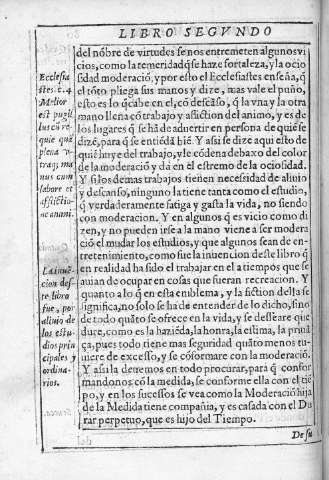 LIBRO SEGVNDO
del nõbre de virtudes se nos entremeten algunos vi
cios, como la temeridad q̃ se haze fortaleza, y la ocio
sidad moderació, y por esto el Ecclesiastes enseña, q̃
el tõto pliega sus manos y dize, mas vale el puño,
esto es lo q̃ cabe en el, cõ descãso, q̃ la vna y la otra
mano llena cõ trabajo y afliction del animo, y es de
los lugares q̃ se hã de aduertir en persona de quié se
dizé, para q̃ se entiédã bié. Y assi se dize aqui esto de
quié huye del trabajo, y le códena debaxo del color
de la moderació y dá en el estremo de la ociosidad.
Y si los demas trabajos tienen necessidad de aliuio
y descanso, ninguno la tiene tanta como el estudio,
q̃ verdaderamente fatiga y gasta la vida, no siendo
con moderacion. Y en algunos q̃ es vicio como di
zen, y no pueden irse a la mano viene a ser modera
ció el mudar los estudios, y que algunos sean de en-
tretenimiento, como fue la inuencion deste libro q̃
en realidad ha sido el trabajar en el a tiempos que se
auian de ocupar en cosas que fueran recreacion. Y
quanto a lo q̃ en esta emblema, y la fiction della se
significa, no solo se ha de entender de lo dicho, sino
de todo quãto se ofrece en la vida, y se desseare que
dure, como es la haziéda, la honra, la estima, la priuã
ça, pues todo tiene mas seguridad quãto menos tu-
uiere de excesso, y se cóformare con la moderació.
Y assi la deuemos en todo procurar, para q̃ confor
mandonos cõ la medida, se conforme ella con el tié
po, y en los sucessos se vea como la Moderació hija
de la Medida tiene compañia, y es casada con el Du
rar perpetuo, que es hijo del Tiempo.
Ecclesia
stes. c. 4
Melior
est pugil
lus cũ re
quie quã
plena v
traq; ma
nus cum
labore et
afflictio-
ne animi.
La inuẽ
cion des-
te libro
fue, por
aliuio de
los estu-
dios prin
cipales y
ordina-
rios.
De su